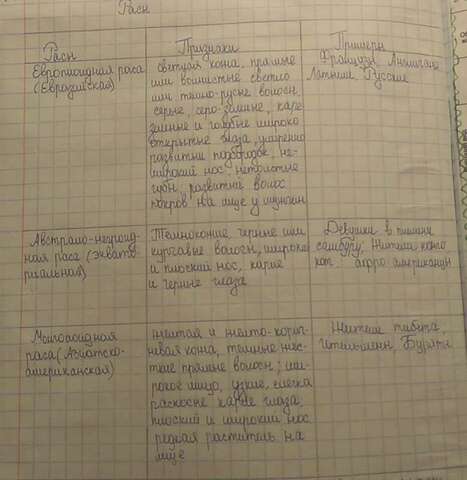 Расы
Расы
Признаки
Примеры
Европиоидная раса
(Евразийская)
светлая кожа, прямые
или волнистые светло
или тёмно-русые волосы,
серые, серо-зелёные, каре
зелёные и голубые широко
открытые глаза, умеренно
развитый подбородок, не-
широкий нос, нетолстые
губы, развитый волос
покров на лице у мужчин
Французы, Англичане
Латыши, Русские
Австрало-негроид-
ная раса (эквато-
риальная)
Темнокожие, черные или
курчавые волосы, широкий
и плоский нос, карие
и черные глаза
Девушки в племени
самбуру, Жители
афро американцы
Монголоидная
раса (Азиатско-
американская)
желтая и желто-корич-
невая кожа, темные жёс-
ткие прямые волосы; ши-
рокое лицо, узкие, слегка
раскосые карие глаза,
плоский и широкий нос
редкая раститель на
лице
Жители тибета,
ительмены Буряты